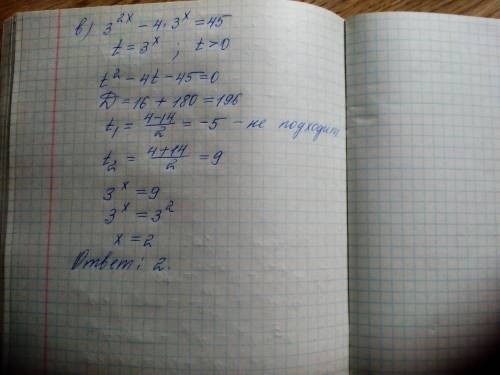 в) 3^{2x} - 4 · 3^x = 45
t = 3^x ; t > 0
t^2 - 4t - 45 = 0
D = 16 + 180 = 196
t_1 = \frac{4-14}{2} = -5 - не подходит
t_2 = \frac{4+14}{2} = 9
3^x = 9
3^x = 3^2
x = 2
Ответ: 2.